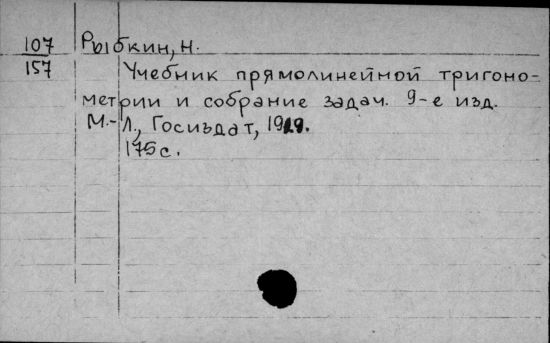 107
157
Рыбкин, Н.
Учебник прямолинейной тригоно-
метрии и собрание задач. 9-е изд.
М.-Л., Госиздат, 1929.
175 с.